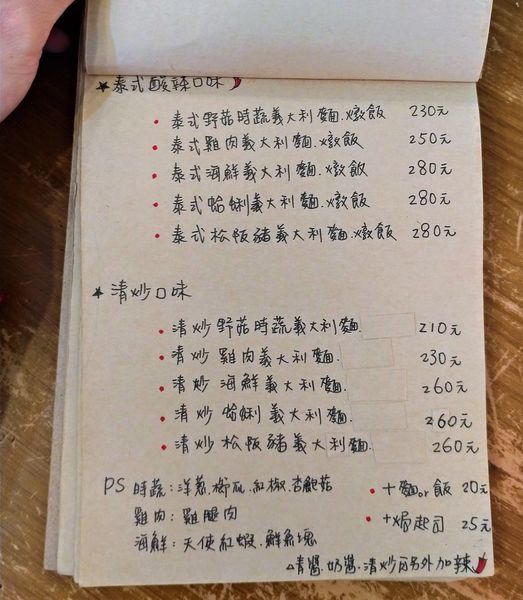 ★泰式酸辣口味
• 泰式野菇時蔬義大利麵.燉飯 230元
• 泰式雞肉義大利麵.燉飯 250元
• 泰式海鮮義大利麵.燉飯 280元
• 泰式蛤蜊義大利麵.燉飯 280元
• 泰式松阪豬義大利麵.燉飯 280元
★清炒口味
• 清炒野菇時蔬義大利麵. 210元
• 清炒雞肉義大利麵. 230元
• 清炒海鮮義大利麵. 260元
• 清炒蛤蜊義大利麵. 260元
• 清炒松阪豬義大利麵. 260元
PS 時蔬:洋蔥.櫛瓜.紅椒.杏鮑菇 • +麵or飯 20元
雞肉:雞腿肉
海鮮:天使紅蝦.鮮魚塊 • +焗起司 25元
△青醬.奶醬.清炒可另外加辣